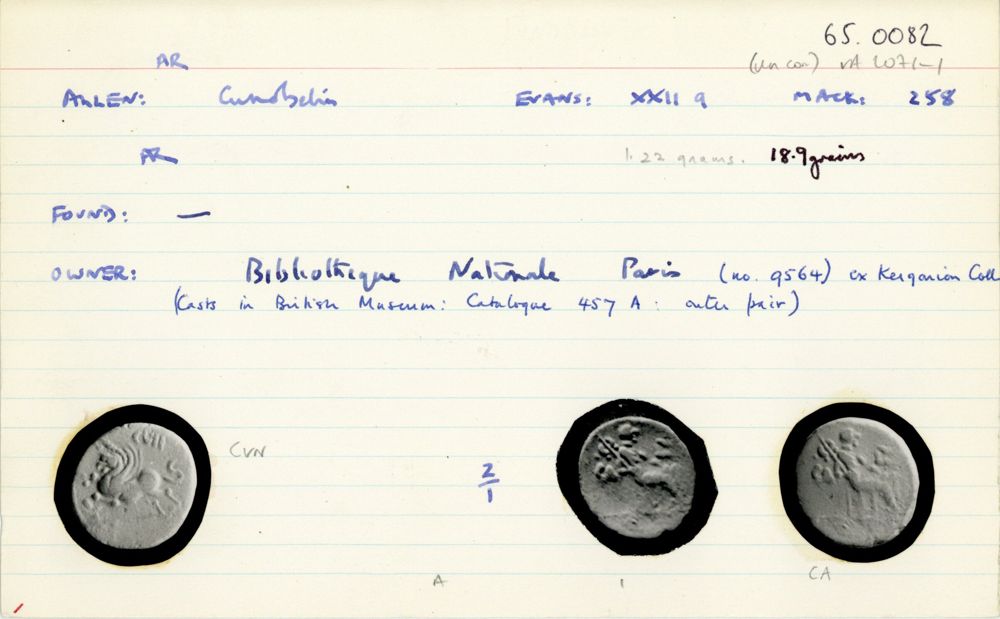 65.0082
AR (Un con) VA 2071-1
ALLEN: Cunobelin EVANS: XXII 9 MACK: 258
AR 1.22 grams. 18.9 grains
FOUND: —
OWNER: Bibliotheque Nationale Paris (no. 9564) ex Kergarion Coll
(Casts in British Museum: Catalogue 457 A: outer pair)
CVN
CVN
2/1
A 1 CA